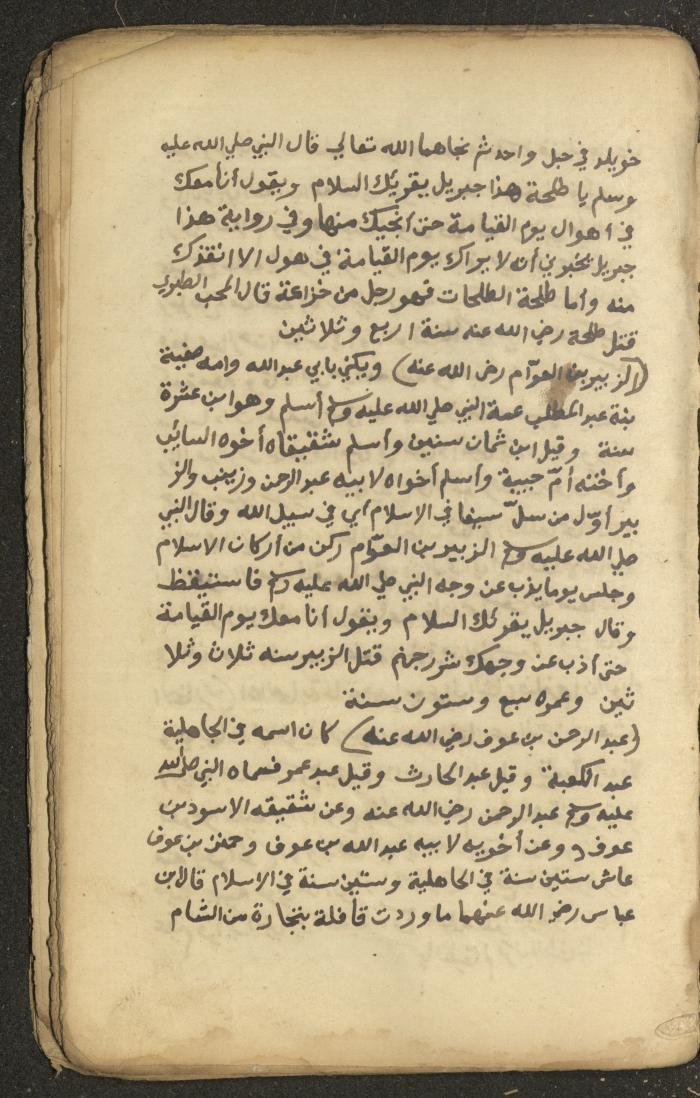 خويلد في حبل واحد ثم نجاهما الله تعالي قال النبي صلي الله عليه
وسلم يا طلحة هذا جبريل يقريك السلام ويقول أنا معك
في اهوال يوم القيامة حتى أنجيك منها وفي رواية هذا
جبريل يخبرني أنه لا يراك يوم القيامة في هول الا انقذك
منه وأما طلحة الطلحات فهو رجل من خزاعة قال المحب الطبري
قتل طلحة رضي الله عنه سنة اربع وثلاثين
(الزبير بن العوّام رضي الله عنه) ويكني بابي عبد الله وامه صفية
بنة عبد المطلب عمة النبي صلي الله عليه وسلم أسلم وهو ابن عشرة
سنة وقيل ابن ثمان سنين وأسلم شقيقاه أخوه السائب
وأخته أمّ حبيبة وأسلم أخواه لابيه عبد الرحمن وزينب والز
بير أوّل من سلّ سيفا في الاسلام أي في سبيل الله وقال النبي
صلي الله عليه وسلم الزبير بن العوّام ركن من أركان الاسلام
وجلس يوما يذب عن وجه النبي صلي الله عليه وسلم فاستيقظ
وقال جبريل يقرئك السلام ويقول أنا معك يوم القيامة
حتى أذب عن وجهك شرر جهنم قتل الزبير سنه ثلاث وثلا
ثين وعمره سبع وستون سنة
(عبد الرحمن بن عوف رضي الله عنه) كان اسمه في الجاهلية
عبد الكعبة وقيل عبد الحارث وقيل عبد عمر فسماه النبي صلى الله
عليه وسلم عبد الرحمن رضي الله عنه وعن شقيقه الاسود بن
عوف وعن أخويه لابيه عبد الله بن عوف وحمنن بن عوف
عاش ستين سنة في الجاهلية وستين سنة في الاسلام قال ابن
عباس رضي الله عنهما ما وردت قافلة بتجارة من الشام